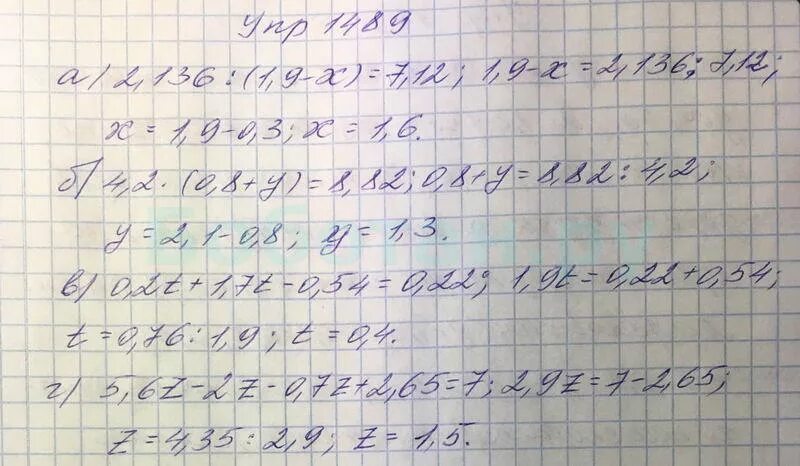 Упр 1489
а) 2,136 : (1,9-x) = 7,12; 1,9-x = 2,136 : 7,12;
x = 1,9-0,3; x = 1,6.
б) 4,2 · (0,8+y) = 8,82; 0,8+y = 8,82 : 4,2;
y = 2,1-0,8; y = 1,3.
в) 0,2t + 1,7t - 0,54 = 0,22; 1,9t = 0,22 + 0,54;
t = 0,76 : 1,9; t = 0,4.
г) 5,6z - 2z - 0,7z + 2,65 = 7; 2,9z = 7 - 2,65;
z = 4,35 : 2,9; z = 1,5.